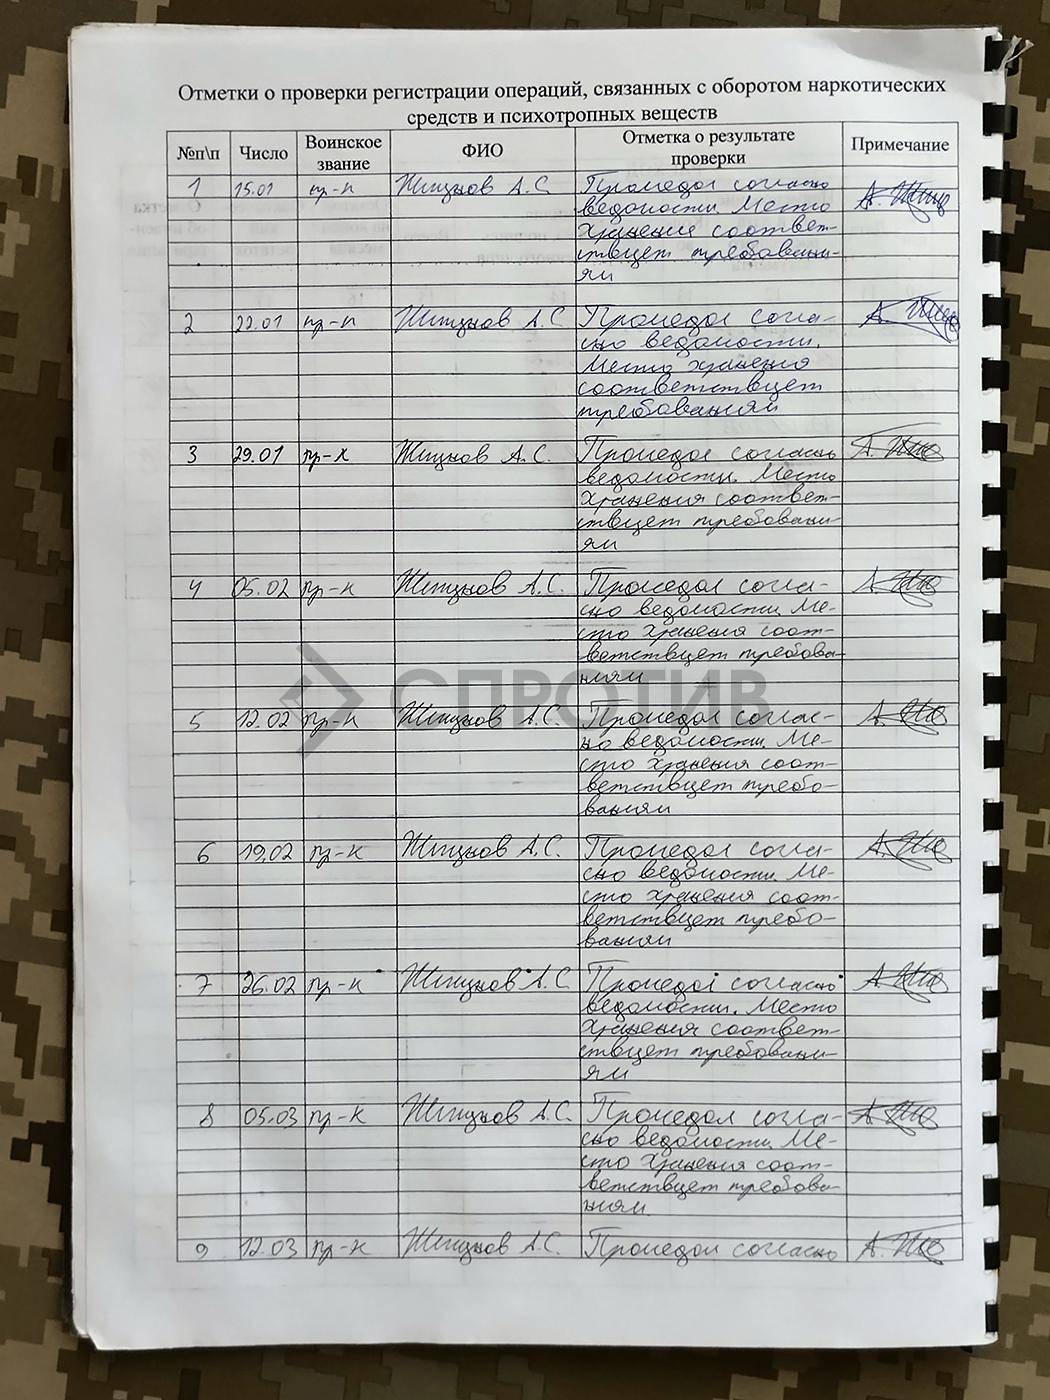 Отметки о проверки регистрации операций, связанных с оборотом наркотических
средств и психотропных веществ
№п\п Число Воинское звание ФИО Отметка о результате проверки Примечание
1 15.01 пр-к А.С. Промедол согласно
ведомости. Место
хранения соответ-
ствует требовани-
ям
2 22.01 пр-к А.С. Промедол согла-
сно ведомости.
Место хранения
соответствует
требованиям
3 29.01 пр-к А.С. Промедол согласно
ведомости. Место
хранения соответ-
ствует требовани-
ям
4 05.02 пр-к А.С. Промедол согла-
сно ведомости. Ме-
сто хранения соот-
ветствует требова-
ниям
СПРОТИВ
5 12.02 пр-к А.С. Промедол соглас-
но ведомости. Ме-
сто хранения соот-
ветствует требо-
ваниям
6 19.02 пр-к А.С. Промедол согла-
сно ведомости. Ме-
сто хранения соот-
ветствует требо-
ваниям
7 26.02 пр-к А.С. Промедол согласно
ведомости. Место
хранения соответ-
ствует требовани-
ям
8 05.03 пр-к А.С. Промедол согла-
сно ведомости. Ме-
сто хранения соот-
ветствует требова-
ниям.
9 12.03 пр-к А.С. Промедол согласно